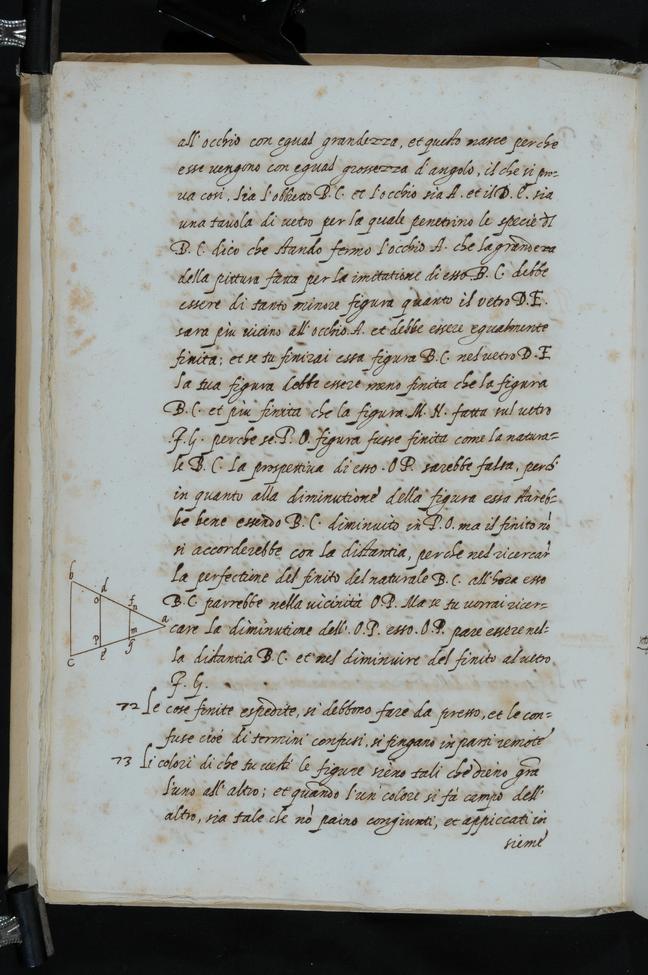 all'occhio con egual grandezza, et questo nasce perche
esse vengono con egual grossezza d'angolo, il che si pro=
va così. Sia l'obbietto B.C. et l'occhio sia A. et il D.E. sia
una tavola di vetro per la quale penetrino le specie di
B.C. dico che stando fermo l'occhio A. che la grandezza
della pittura fatta per la imitatione di esso B.C. debbe
essere di tanto minore figura quanto il vetro D.E.
sara più vicino all'occhio A. et debbe essere egualmente
finita; et se tu finirai essa figura B.C. nel vetro D.E
la tua figura debbe essere meno finita che la figura
B.C. et più finita che la figura M.N. fatta sul vetro
F.G. perche se P.O. figura fusse finita come la natura=
le B.C. la prospettiva di esso .O P. sarebbe falsa, perche
in quanto alla diminutione della figura essa stareb=
be bene essendo B.C. diminuito in P.O. ma il finito nō
si accorderebbe con la distantia, perche nel ricercar
la perfectione del finito del naturale B.C. all'hora esso
B.C. parrebbe nella vicinità O.P. Ma se tu vorrai ricer=
care la diminutione dell'.O.P. esso .O.P. pare essere nel=
la distantia B.C. et nel diminuire del finito al vetro
F.G.
72 Le cose finite espedite, si debbono fare da presso, et le con=
fuse cioè di termini confusi, si fingano in parti remote
73 Li colori di che tu vesti le figure sieno tali che dieno gra
l'uno all'altro; et quando l'un colore si fà campo dell'
altro, sia tale che nō paino congiunti, et appiccati in
sieme
b
d
o
f
n
a
m
g
p
e
c